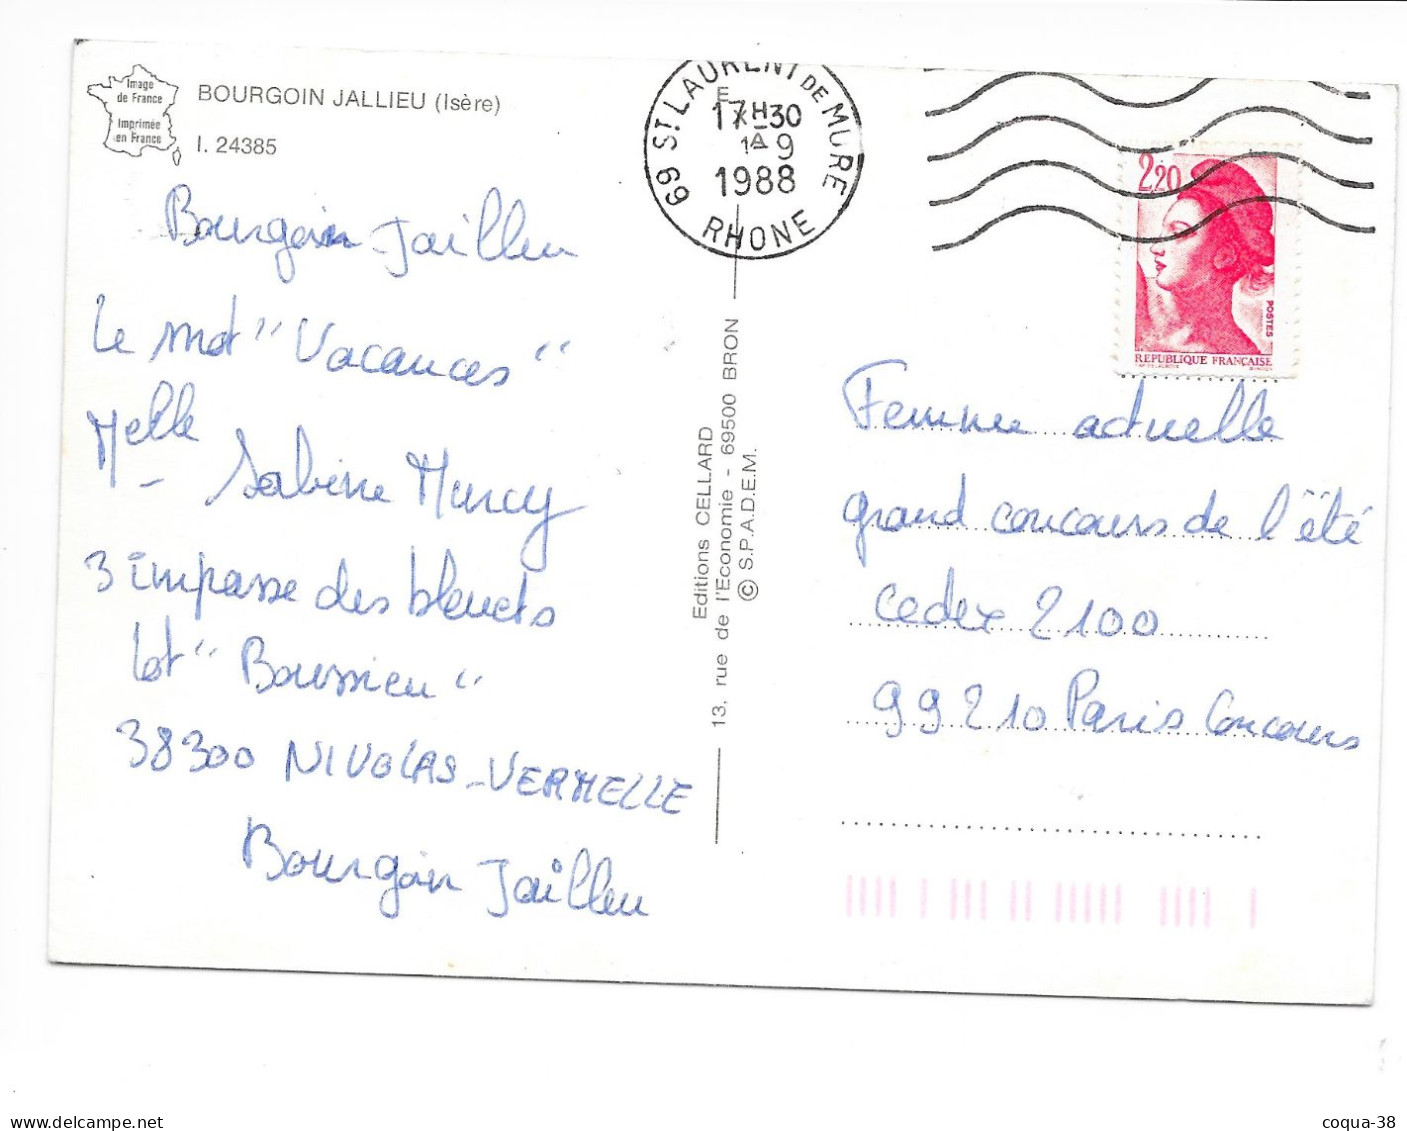 Image
de France
Imprimée
en France
BOURGOIN JALLIEU (Isère)
I. 24385
Bourgoin Jailleu
Le mot "Vacances"
Melle Sabine Murcy
3 impasse des bleuets
lot "Boussieu"
38300 NIVOLAS-VERMELLE
Bourgoin Jailleu
Editions CELLARD
13, rue de l'Economie - 69500 BRON
© S.P.A.D.E.M.
69 ST LAURENT DE MURE
17H30
1A 9
1988
RHONE
2,20
POSTES
REPUBLIQUE FRANÇAISE
Femme actuelle
grand concours de l'été
cedex 2100
99210 Paris Concours
delcampe.net
coqua-38